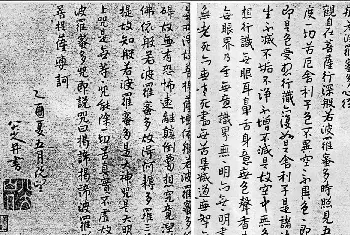 般若波羅蜜多心經
觀自在菩薩行深般若波羅蜜多時照見五
度一切苦厄舍利子色不異空空不異色
即是色受想行識亦復如是舍利子是諸
生不滅不垢不淨不增不減是故空中無色
想行識無眼耳鼻舌身意無色聲香
無眼界乃至無意識界無無明亦無無明
無老死亦無老死盡無苦集滅道無智
菩提薩埵依般若波羅蜜多
礙故無有恐怖遠離顛倒夢想究竟涅槃
佛依般若波羅蜜多故得阿耨多羅三
提故知般若波羅蜜多是大神咒是大明
上咒是無等等咒能除一切苦真實不虛故
波羅蜜多咒即說咒曰揭諦揭諦波羅
菩提薩婆訶
乙酉夏五月
書